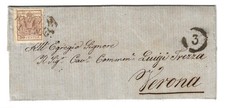 All' Egregio Signore
Il Sig.r Cav.e Commen.e Luigi Trezza
Verona
3